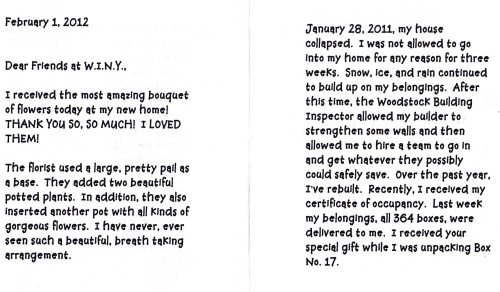 February 1, 2012
Dear Friends at W.I.N.Y.,
I received the most amazing bouquet
of flowers today at my new home!
THANK YOU SO, SO MUCH! I LOVED
THEM!
The florist used a large, pretty pail as
a base. They added two beautiful
potted plants. In addition, they also
inserted another pot with all kinds of
gorgeous flowers. I have never, ever
seen such a beautiful, breath taking
arrangement.
January 28, 2011, my house
collapsed. I was not allowed to go
into my home for any reason for three
weeks. Snow, ice, and rain continued
to build up on my belongings. After
this time, the Woodstock Building
Inspector allowed my builder to
strengthen some walls and then
allowed me to hire a team to go in
and get whatever they possibly
could safely save. Over the past year,
I've rebuilt. Recently, I received my
certificate of occupancy. Last week
my belongings, all 364 boxes, were
delivered to me. I received your
special gift while I was unpacking Box
No. 17.